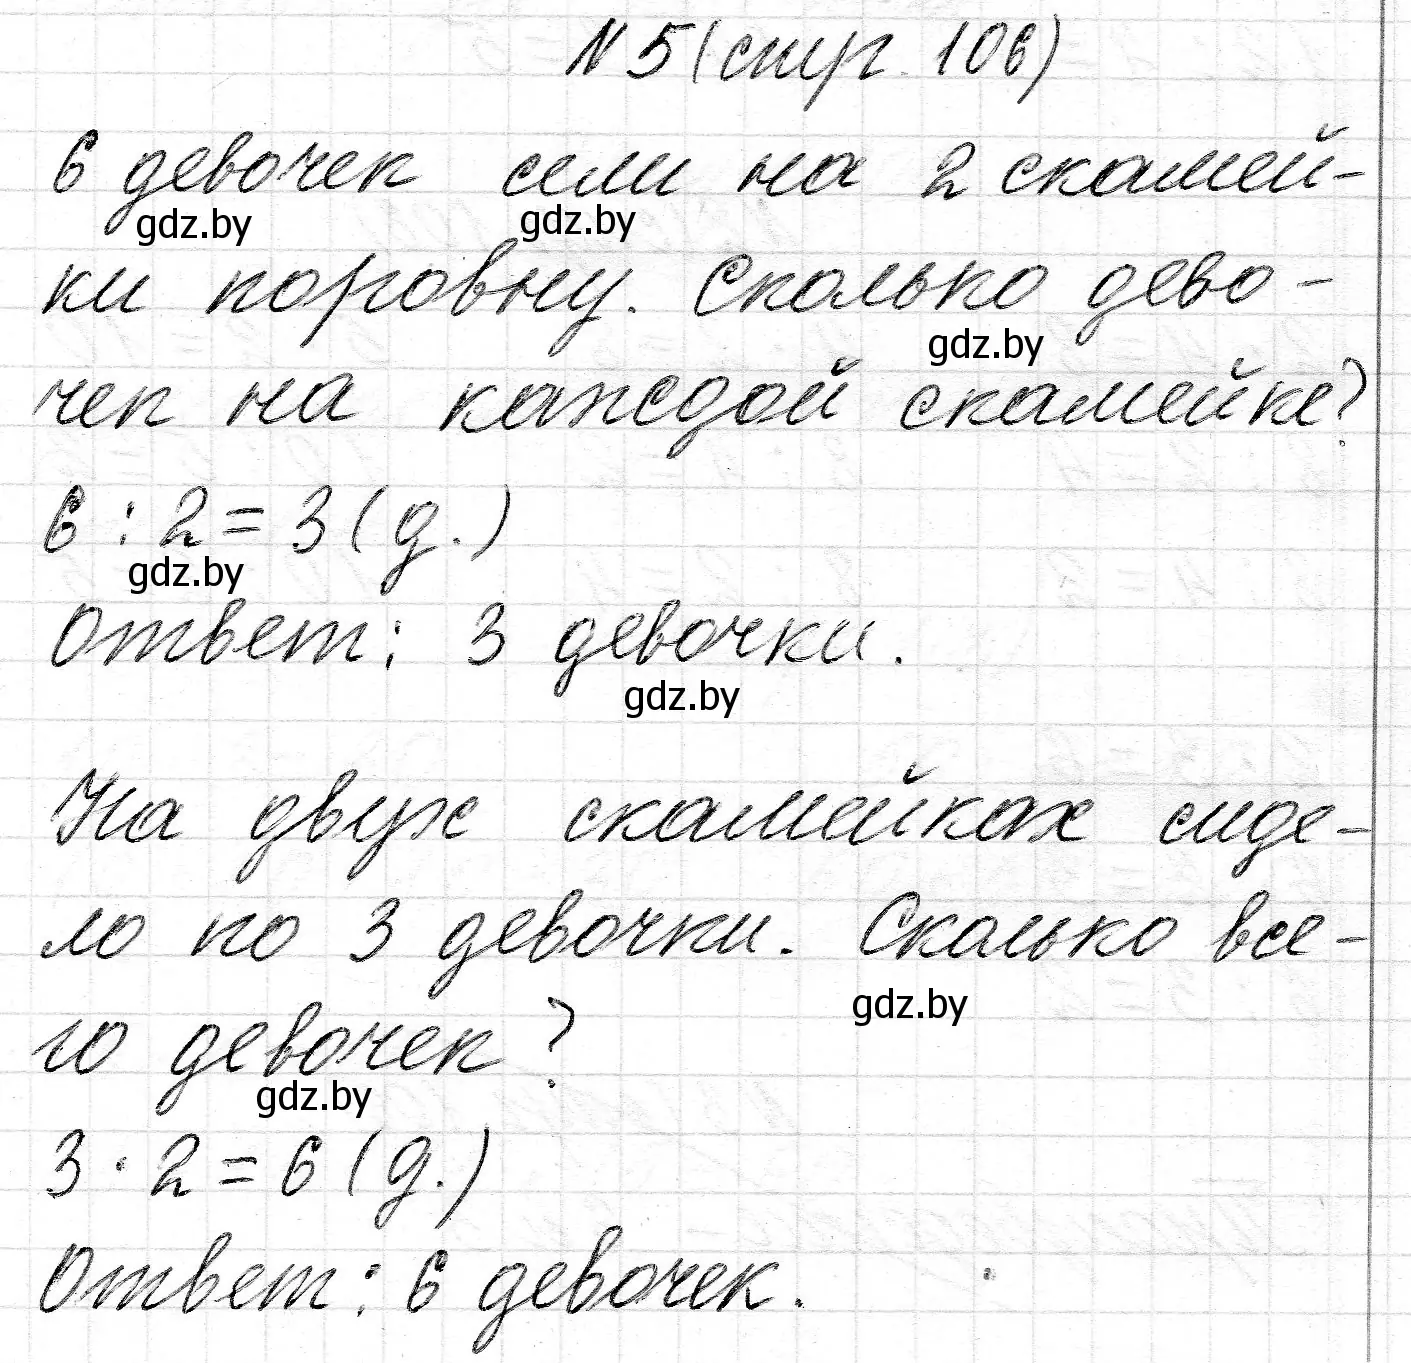 N 5 (стр. 106)
6 девочек сели на 2 скамей-
gdz.by gdz.by
ки поровну. Сколько дево-
gdz.by
чек на каждой скамейке?
6 : 2 = 3 (д.)
gdz.by
Ответ: 3 девочки.
gdz.by
На двух скамейках сиде-
ло по 3 девочки. Сколько все-
gdz.by
го девочек?
gdz.by
3 · 2 = 6 (д.)
Ответ: 6 девочек.